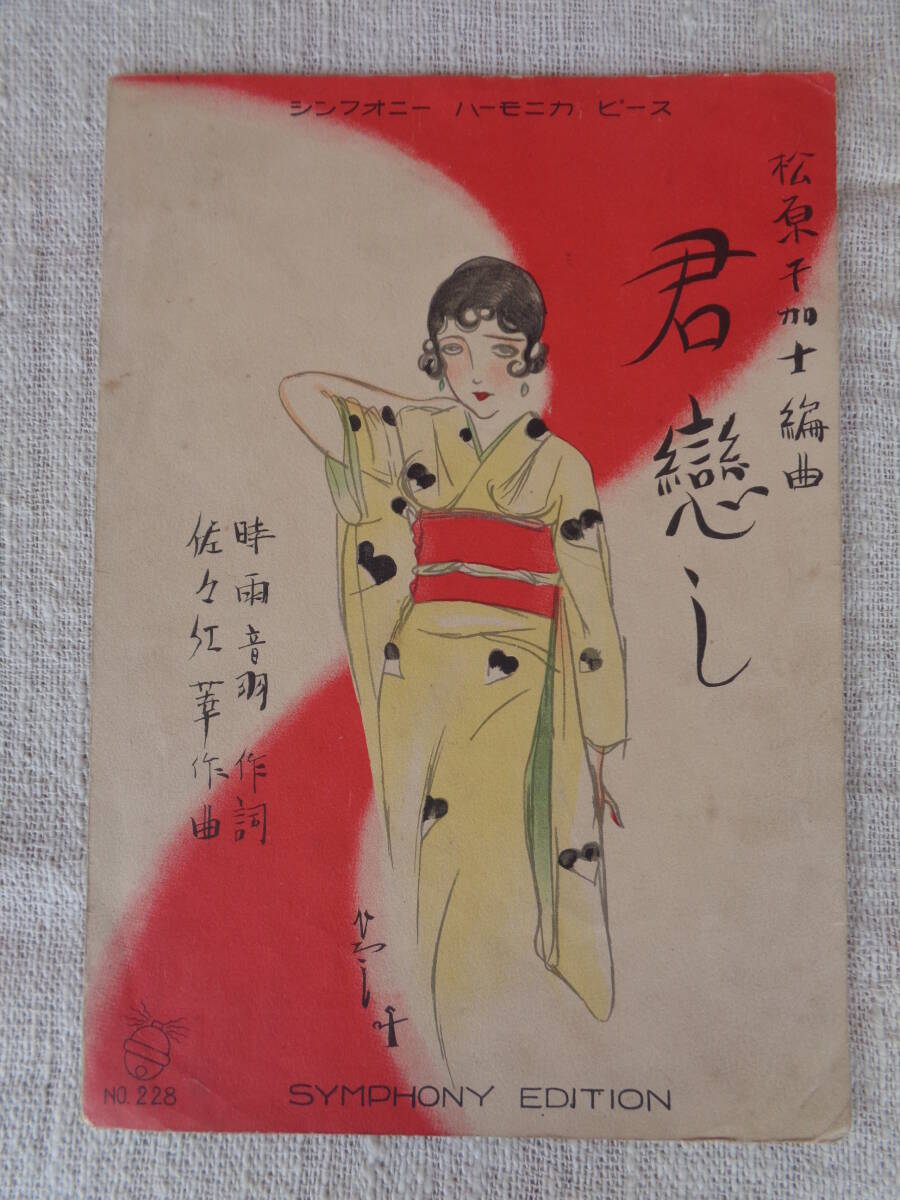 シンフォニー ハーモニカ ピース
松原千加士 編曲
君戀し
時雨音羽 作詞
佐々紅華 作曲
NO. 228
SYMPHONY EDITION